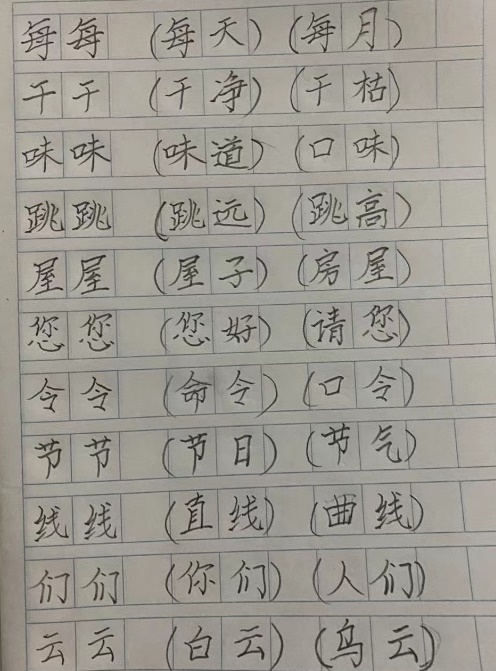 每每 (每天) (每月)
干干 (干净) (干枯)
味味 (味道) (口味)
跳跳 (跳远) (跳高)
屋屋 (屋子) (房屋)
您您 (您好) (请您)
令令 (命令) (口令)
节节 (节日) (节气)
线线 (直线) (曲线)
们们 (你们) (人们)
云云 (白云) (乌云)